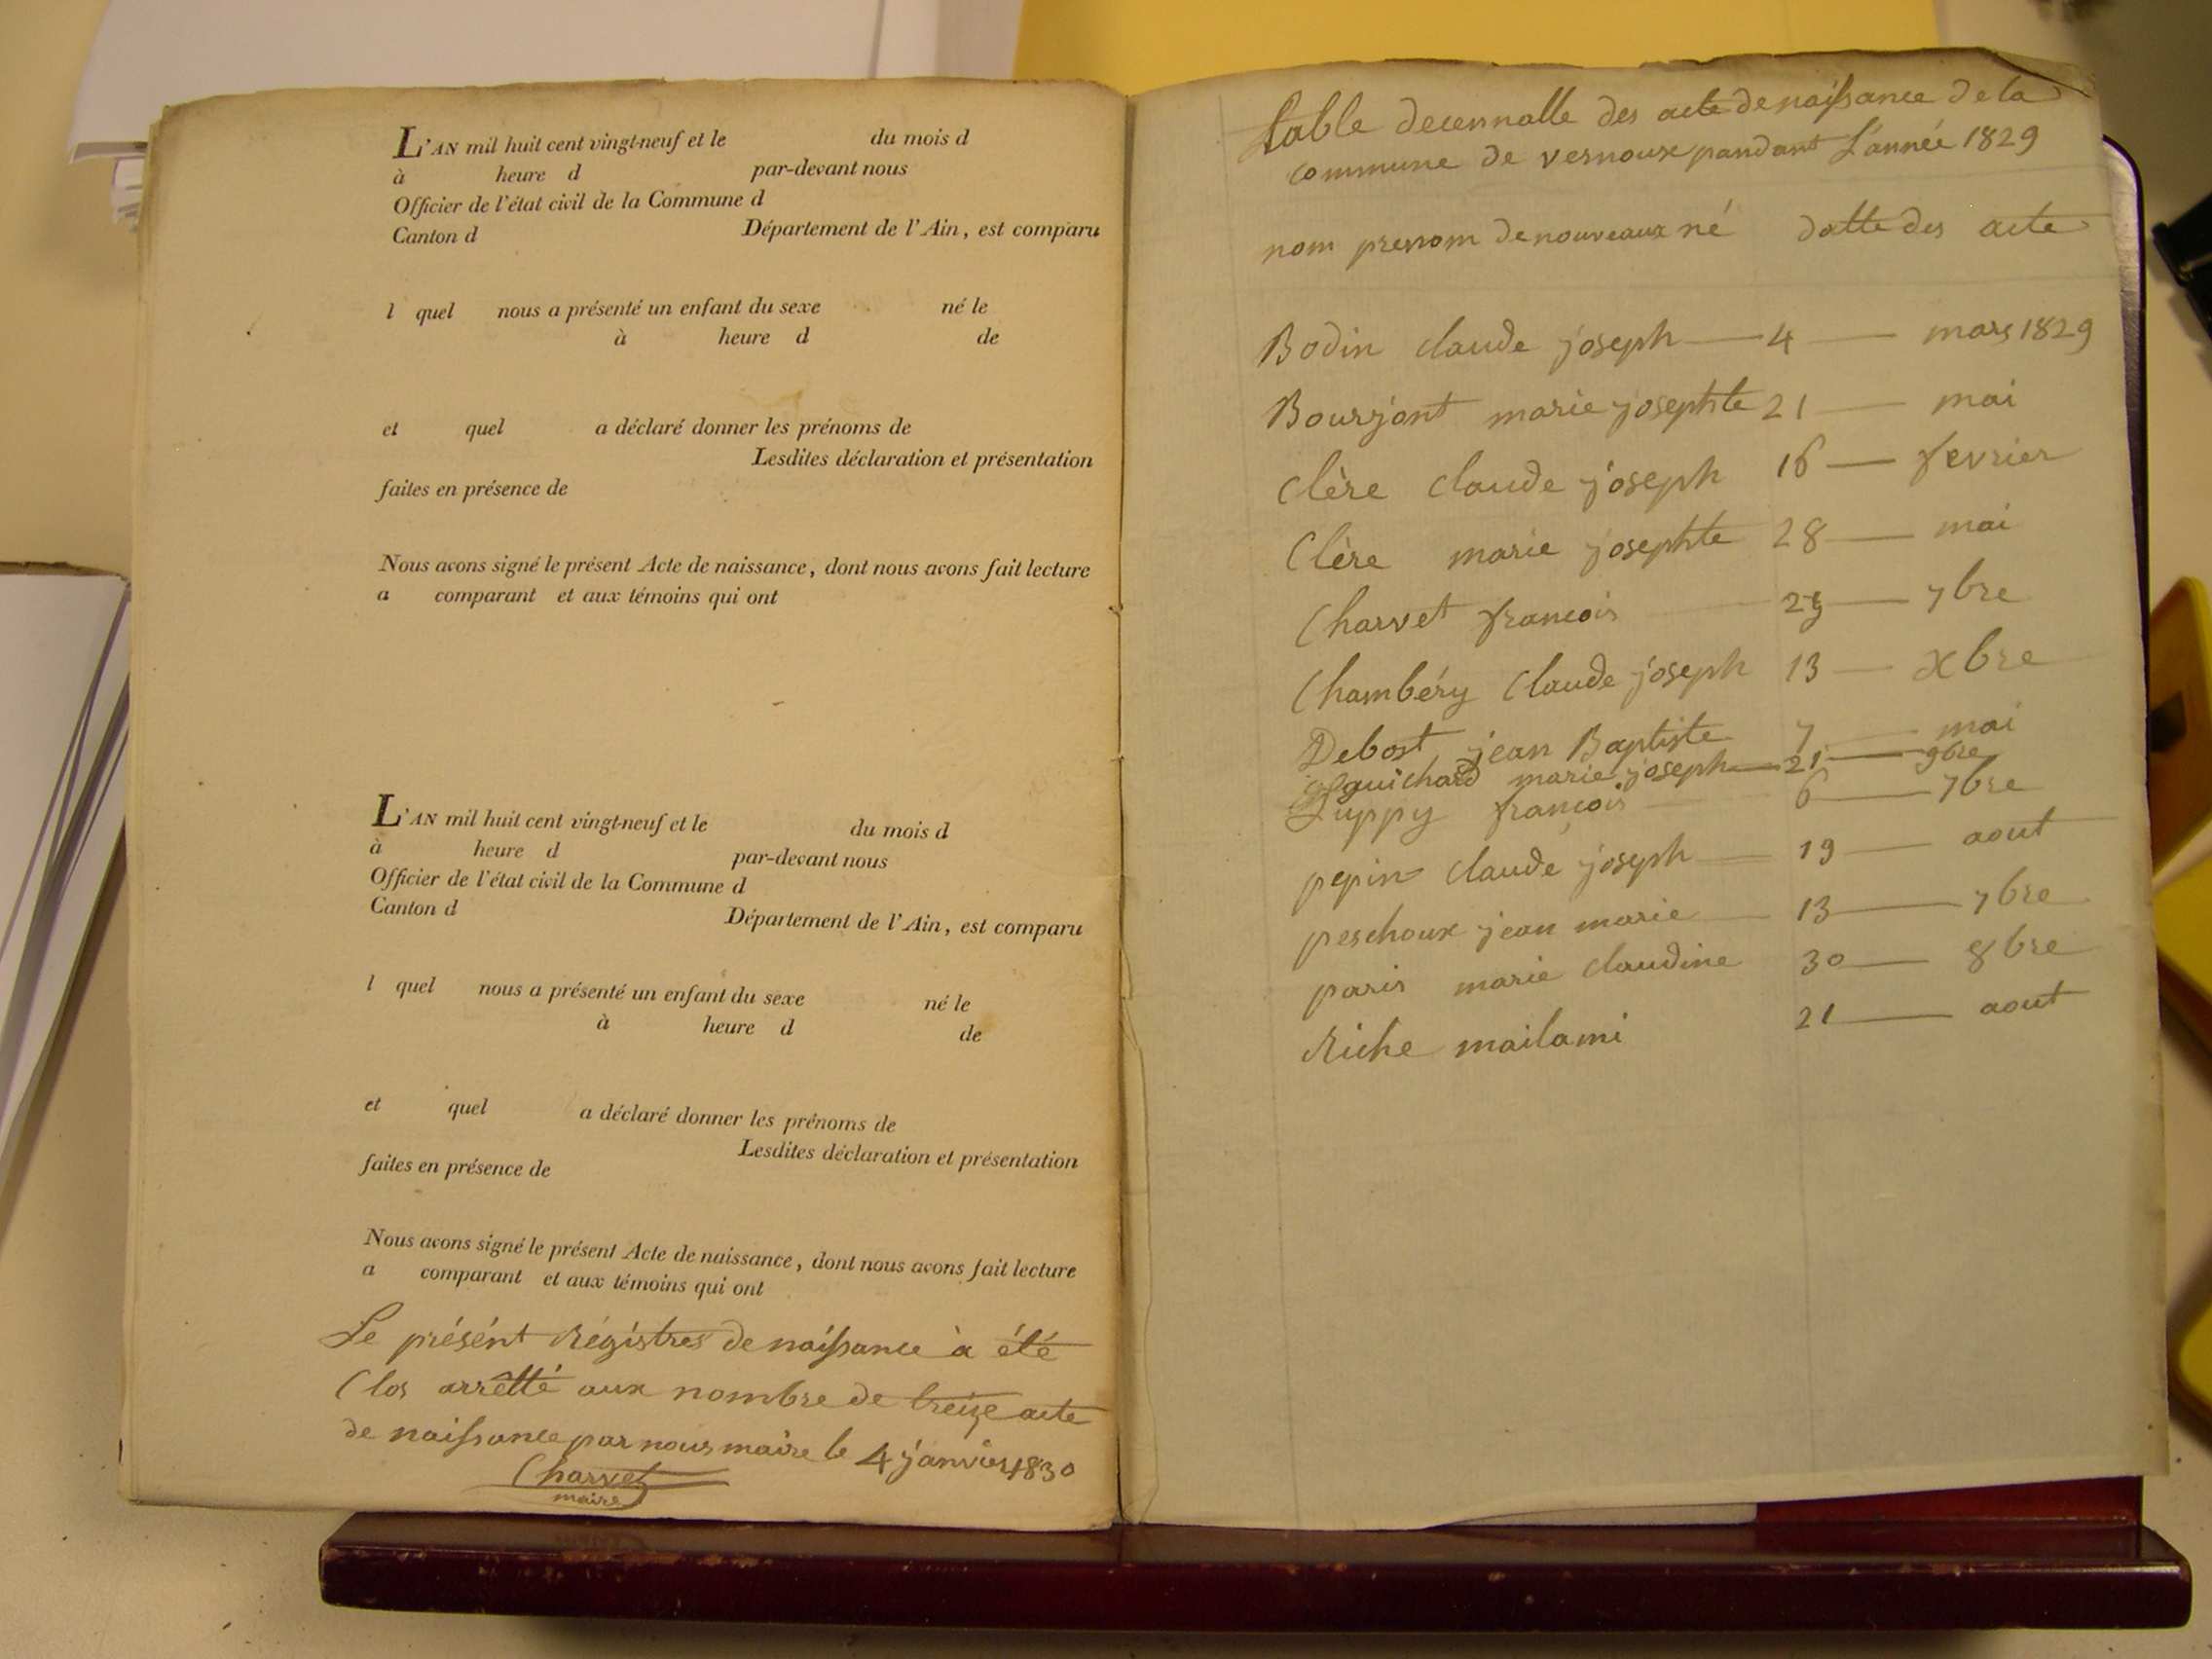 L'AN mil huit cent vingt-neuf et le du mois d
à heure d par-devant nous
Officier de l'état civil de la Commune d
Canton d Département de l'Ain, est comparu
l quel nous a présenté un enfant du sexe né le
à heure d de
et quel a déclaré donner les prénoms de
Lesdites déclaration et présentation
faites en présence de
Nous avons signé le présent Acte de naissance, dont nous avons fait lecture
a comparant et aux témoins qui ont
L'AN mil huit cent vingt-neuf et le du mois d
à heure d par-devant nous
Officier de l'état civil de la Commune d
Canton d Département de l'Ain, est comparu
l quel nous a présenté un enfant du sexe né le
à heure d de
et quel a déclaré donner les prénoms de
Lesdites déclaration et présentation
faites en présence de
Nous avons signé le présent Acte de naissance, dont nous avons fait lecture
a comparant et aux témoins qui ont
Le présént Régistres de naissance à été
Clos arrêtté aux nombre de treize acte
de naissance par nous maire le 4 janvier 1830
Charvet
maire
table decennalle des acte de naissance de la
commune de vernoux pandant L'année 1829
nom prenom de nouveaux né datte des acte
Bodin claude joseph 4 mars 1829
Bourjont marie josephte 21 mai
Clère claude joseph 16 fevrier
Clère marie josephte 28 mai
Charvet francois 7bre
Chambéry Claude joseph 13 xbre
Debost jean Baptiste 7 mai
guichard marie joseph 21 9bre
Luppy françois 6 7bre
pepin claude joseph 19 aout
peschoux jean marie 13 7bre
paris marie claudine 30 8bre
Riche mailami 21 aout